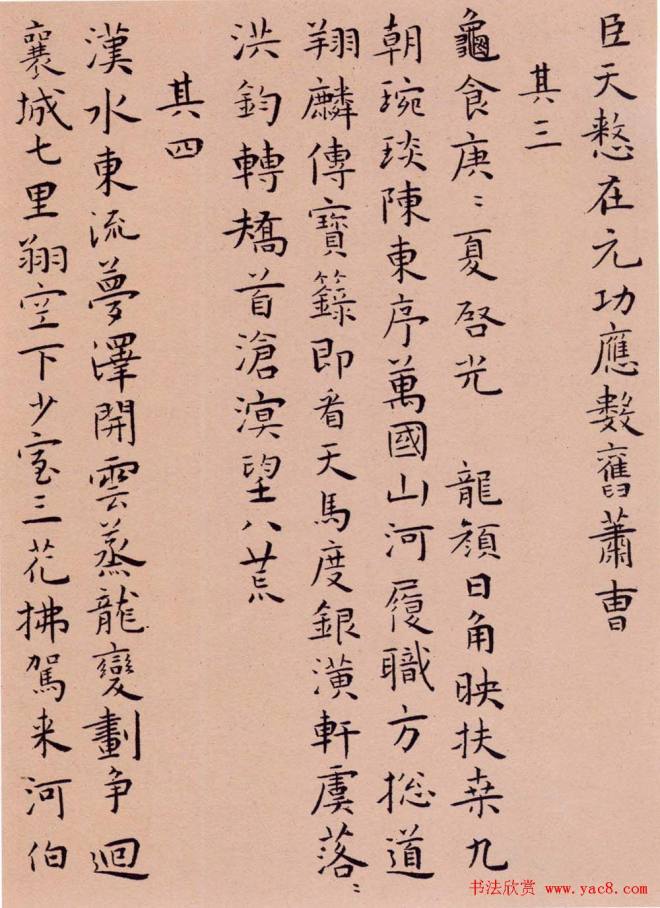 臣天憗在元功應數舊蕭曹
其三
龜食庚〻夏啓光　龍顔日角映扶桒九
朝琬琰陳東序萬國山河履職方捴道
翔麟傳寶籙即看天馬度銀潢軒虞落〻
洪鈞轉矯首滄溟望八荒
其四
漢水東流夢澤開雲蒸龍變劃争迴
襄城七里翔空下少室三花拂駕来河伯
书法欣赏 www.yac8.com